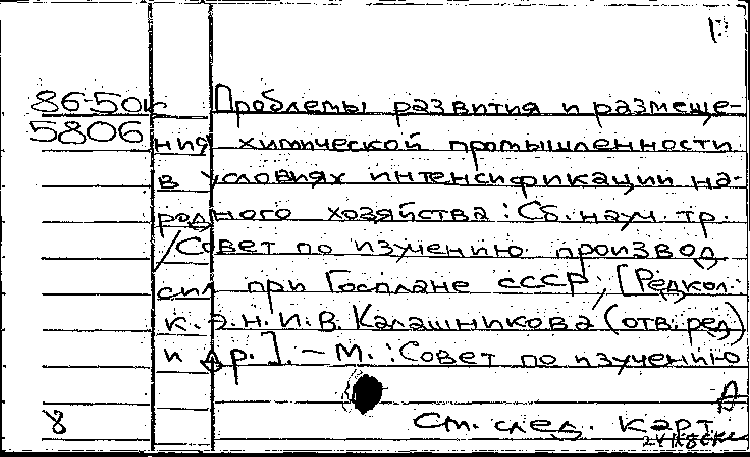 86-50к Проблемы развития и размеще-
5806 ния химической промышленности
в условиях интенсификации на-
родного хозяйства : Сб. науч. тр.
/Совет по изучению производ
сил при Госплане СССР; [Редкол.:
к.э.н. И.В. Калашникова (отв. ред)
и др.]. – М. : Совет по изучению
8 См. след. карт